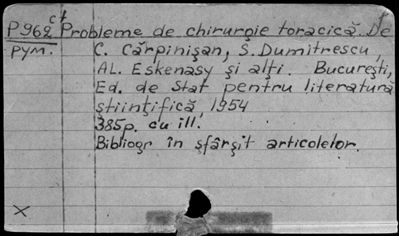 P962 ct Probleme de chirurgie toracică. De
рум. C. Cărpinișan, S. Dumitrescu,
AL. Eskenasy și alți. București,
Ed. de Stat pentru literatură
științifică, 1954
385p. cu ill.
Bibliogr în sfârșit articolelor.
X